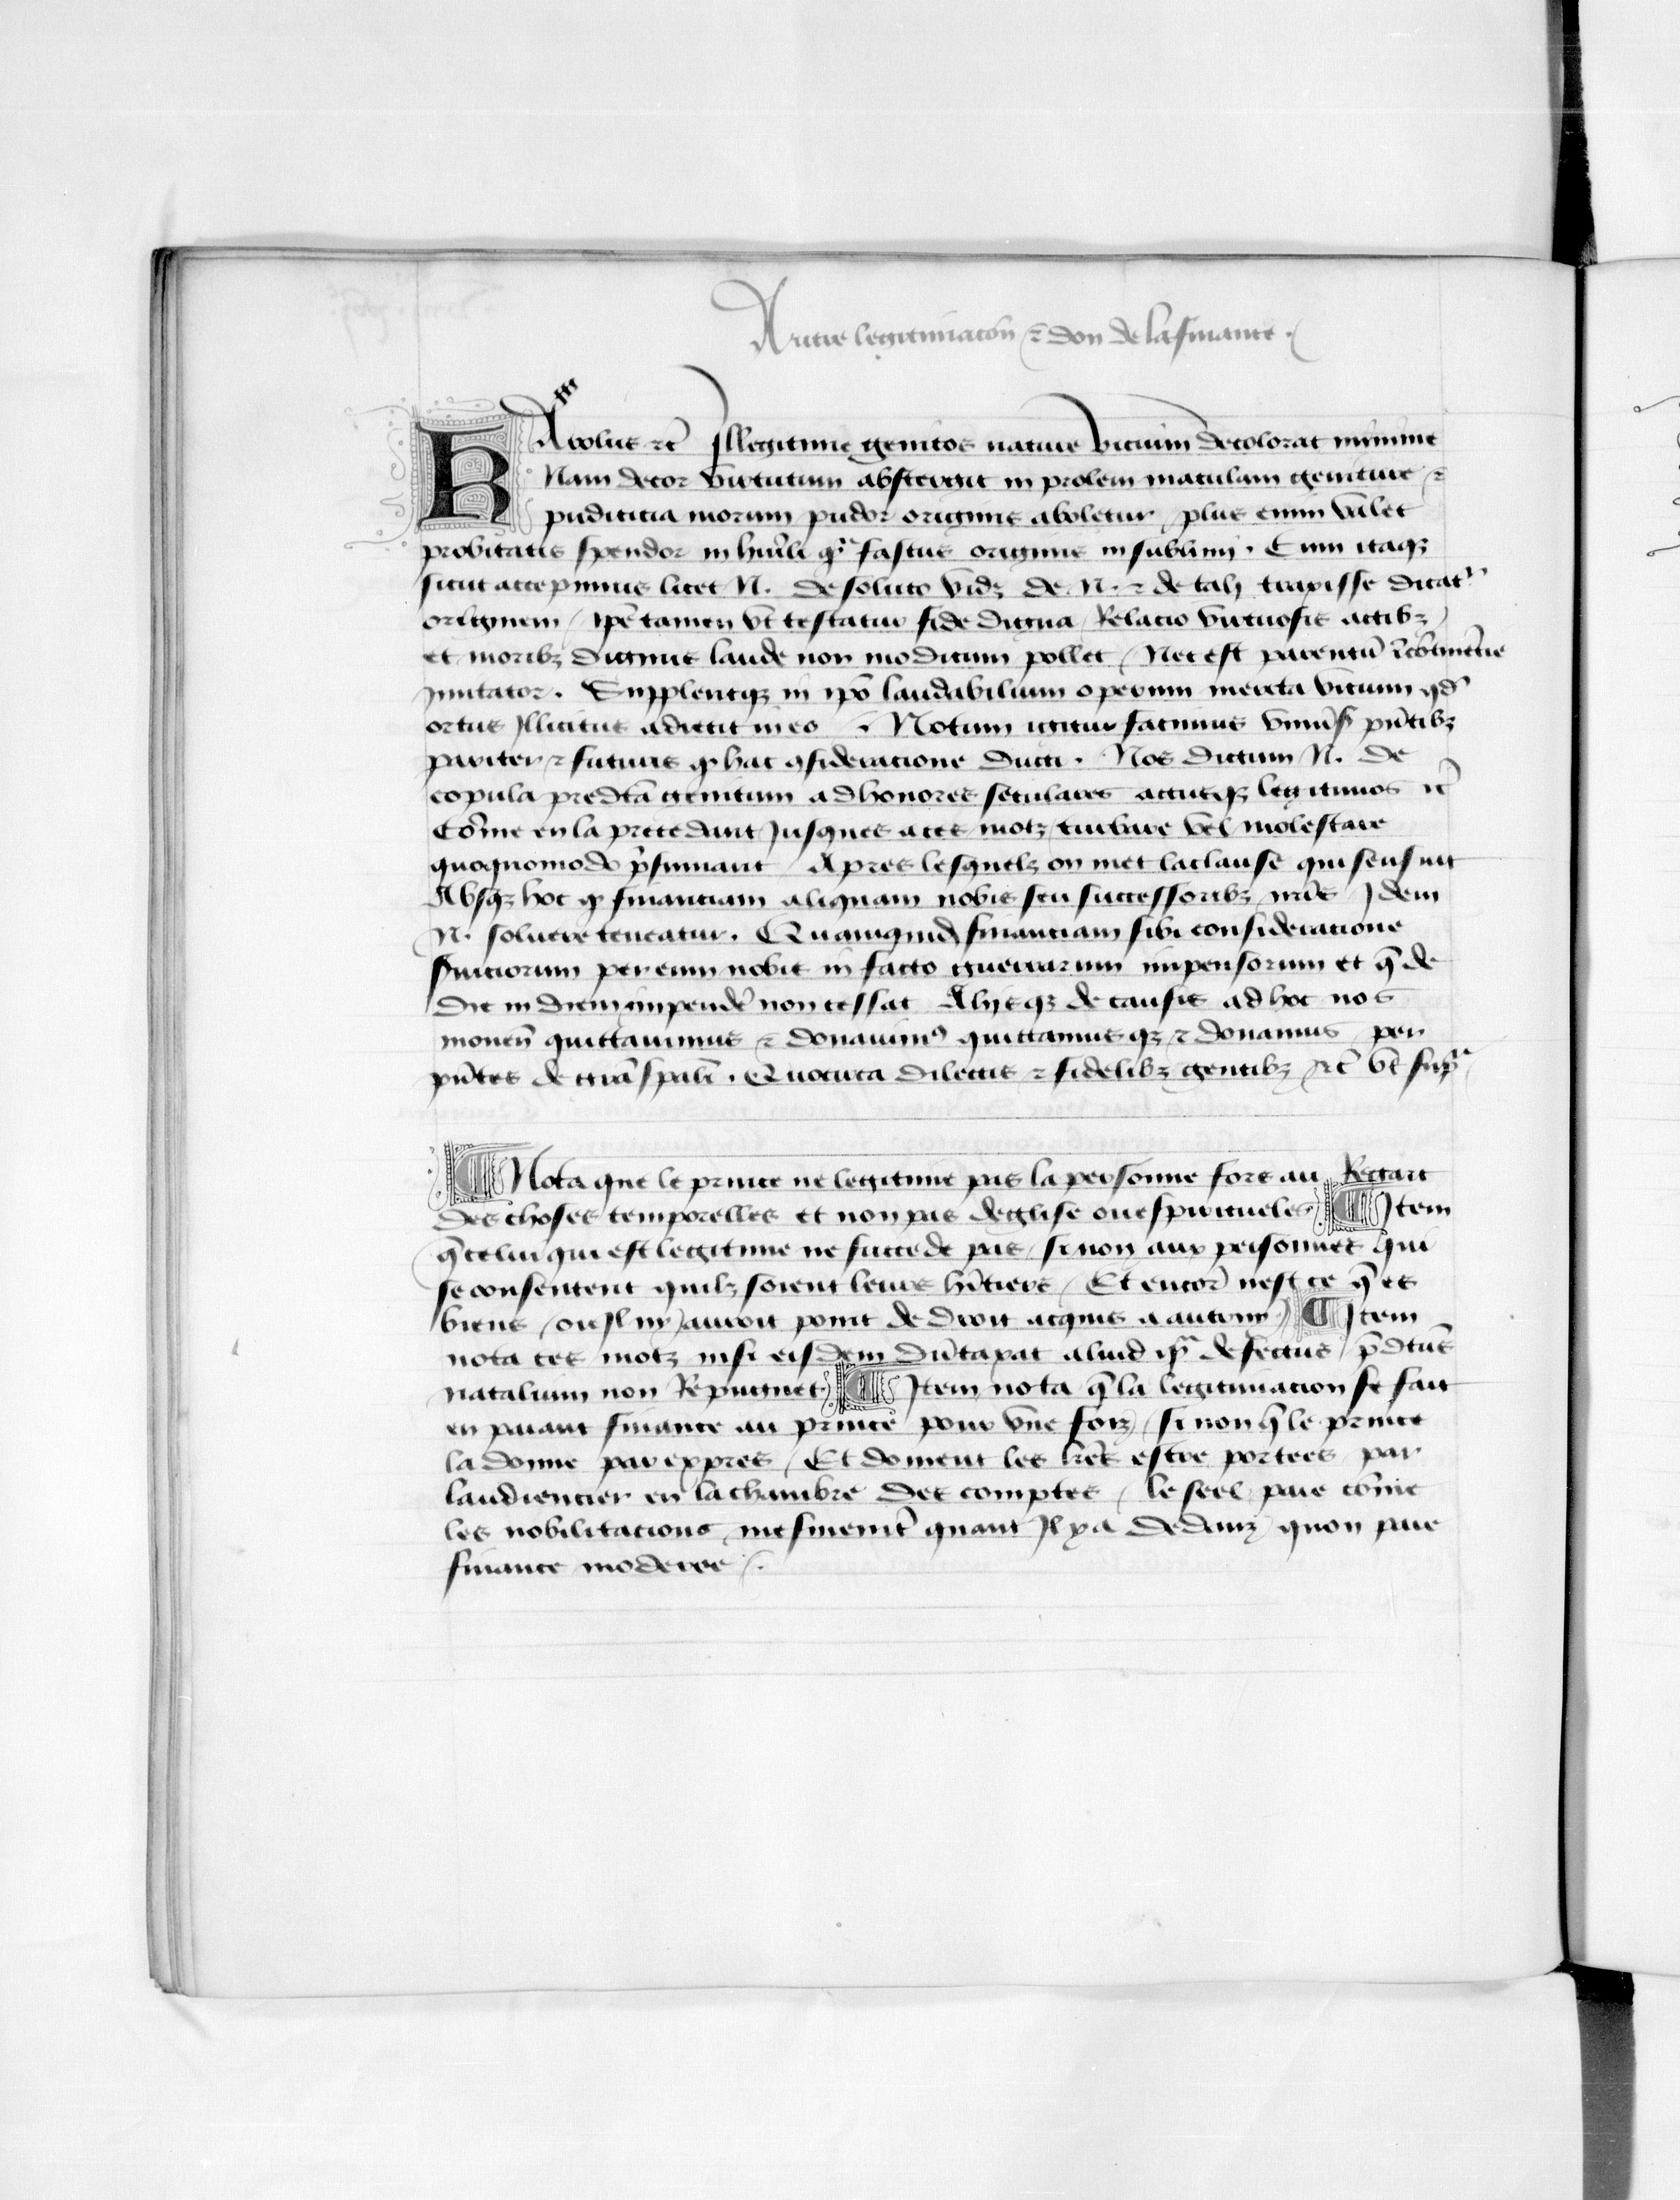 Autre legitimacōn ⁊ don de la finance .
KArolus ⁊c̄ Illegitime genitos nature vicium decolorat minime
Nam decor virtutum abstergit in prolem maculam geniture ⁊
pudicicia morum pudor originis aboletur / plus enim valet
probitatis spendor in hūili qͣ fastus originis in sublimi . Cum itaqȝ
sicut accepimus licet N. de soluto vidȝ de N. ⁊ de tali traxisse dicatʳ
originem / ip̄e tamen vt testatur fide digna Relacio virtuosis actibȝ
et moribȝ dignus laude non modicum pollet / Nec est parentū īcōtinēcie
imitator . Supplentqȝ in ip̄o laudabilium operum merita vicium qd̄
ortus Illicitus adiecit in eo . Notum igitur facimus vniūsis pn̄tibȝ
pariter ⁊ futuris qͩ hac ꝯsideracione ducti . Nos dictum N. de
copula predc̄a genitum ad honores seculares actusqȝ legitimos ⁊c̄
Cōme en la precedant Jusques a ces motȝ turbare vel molestare
quoquomodo p̄sumant Apres lesquelȝ on met la clause qui sensuit
Absqȝ hoc qͩ financiam aliquam nobis seu successoribȝ nr̄is Idem
N. soluere teneatur . Quamquid̄ financiam sibi consideracione
s̄uiciorum per eum nobis in facto guerrarum impensorum et q̄ de
die in diem impendē non cessat Alijsqȝ de causis ad hoc nos
mouen̄ quittauimus ⁊ donauimꝰ quittamusqȝ ⁊ donamus per
pn̄tes de grā spāli . Quocirca dilectis ⁊ fidelibȝ gentibȝ ⁊c̄ vt supͣ
¶ Nota que le prince ne legitime pas la personne fors au Regart
des choses temporelles et non pas deglise ou espirituelles ¶ Item
q̄ celui qui est legitime ne succede pas / si non aux personnes qui
se consentent quilȝ soient leurs hīctiers / Et encor̄ nest ce q̄ es
biens / ou Il ny auroit point de droit acquis a autruy ¶ Item
nota ces motȝ nisi eisdem dūtaxat aliud qͣ defectus p̄dc̄us
natalium non Repugnet ¶ Item nota q̄ la legitimacion se fait
en paiant finance au prince pour vne foiȝ / si non q̄ le prince
la donne par expres / Et doiuent les lr̄es estre portees par
laudiencier en la chambre des comptes / le seel paie cōme
les nobilitacions mesmemēt quant Il y a dedanȝ quon paie
finance moderee .